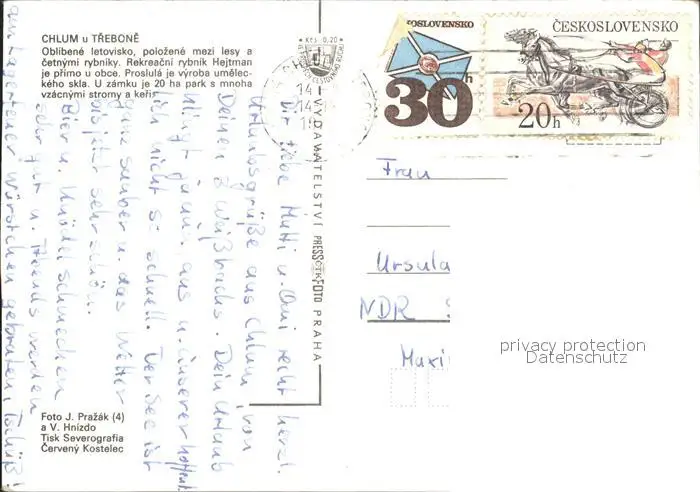 CHLUM u TŘEBONĚ
Oblíbené letovisko, položené mezi lesy a
četnými rybníky. Rekreační rybník Hejtman
je přímo u obce. Proslulá je výroba umělec-
kého skla. U zámku je 20 ha park s mnoha
vzácnými stromy a keři.
Kčs 0,20
ČESKOSLOVENSKO
30h
ČESKOSLOVENSKO
20h
VYDAVATELSTVÍ PRESSFOTO PRAHA
Ihr liebe Mutti u. Omi recht herzl.
Urlaubsgrüße aus Chlum von
Deinen 3 Weißbachs. Dein Urlaub
klingt ja nun aus u. unserer hoffentl.
noch nicht so schnell. Der See ist
ganz sauber u. das Wetter
bis jetzt sehr schön.
Bier u. Knödel schmecken
sehr gut u. Abends werden
am Lagerfeuer Würstchen gebraten. Tschüß!
Frau
Ursula
NDR
Maxi
privacy protection
Datenschutz
Foto J. Pražák (4)
a V. Hnízdo
Tisk Severografia
Červený Kostelec